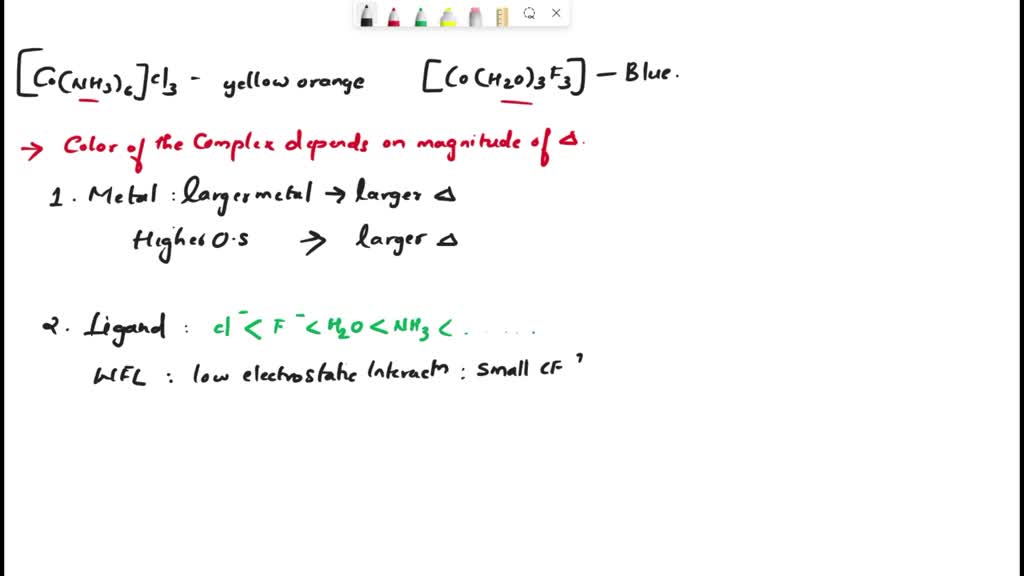 [Co(NH3)6]Cl3 - yellow orange [Co(H2O)3F3] - Blue.
→ Color of the Complex depends on magnitude of Δ.
1. Metal : larger metal → larger Δ
Higher O.S → larger Δ
2. Ligand : cl⁻ < F⁻ < H2O < NH3 < . . . . . .
WFL : low electrostatic Interactn : small CF